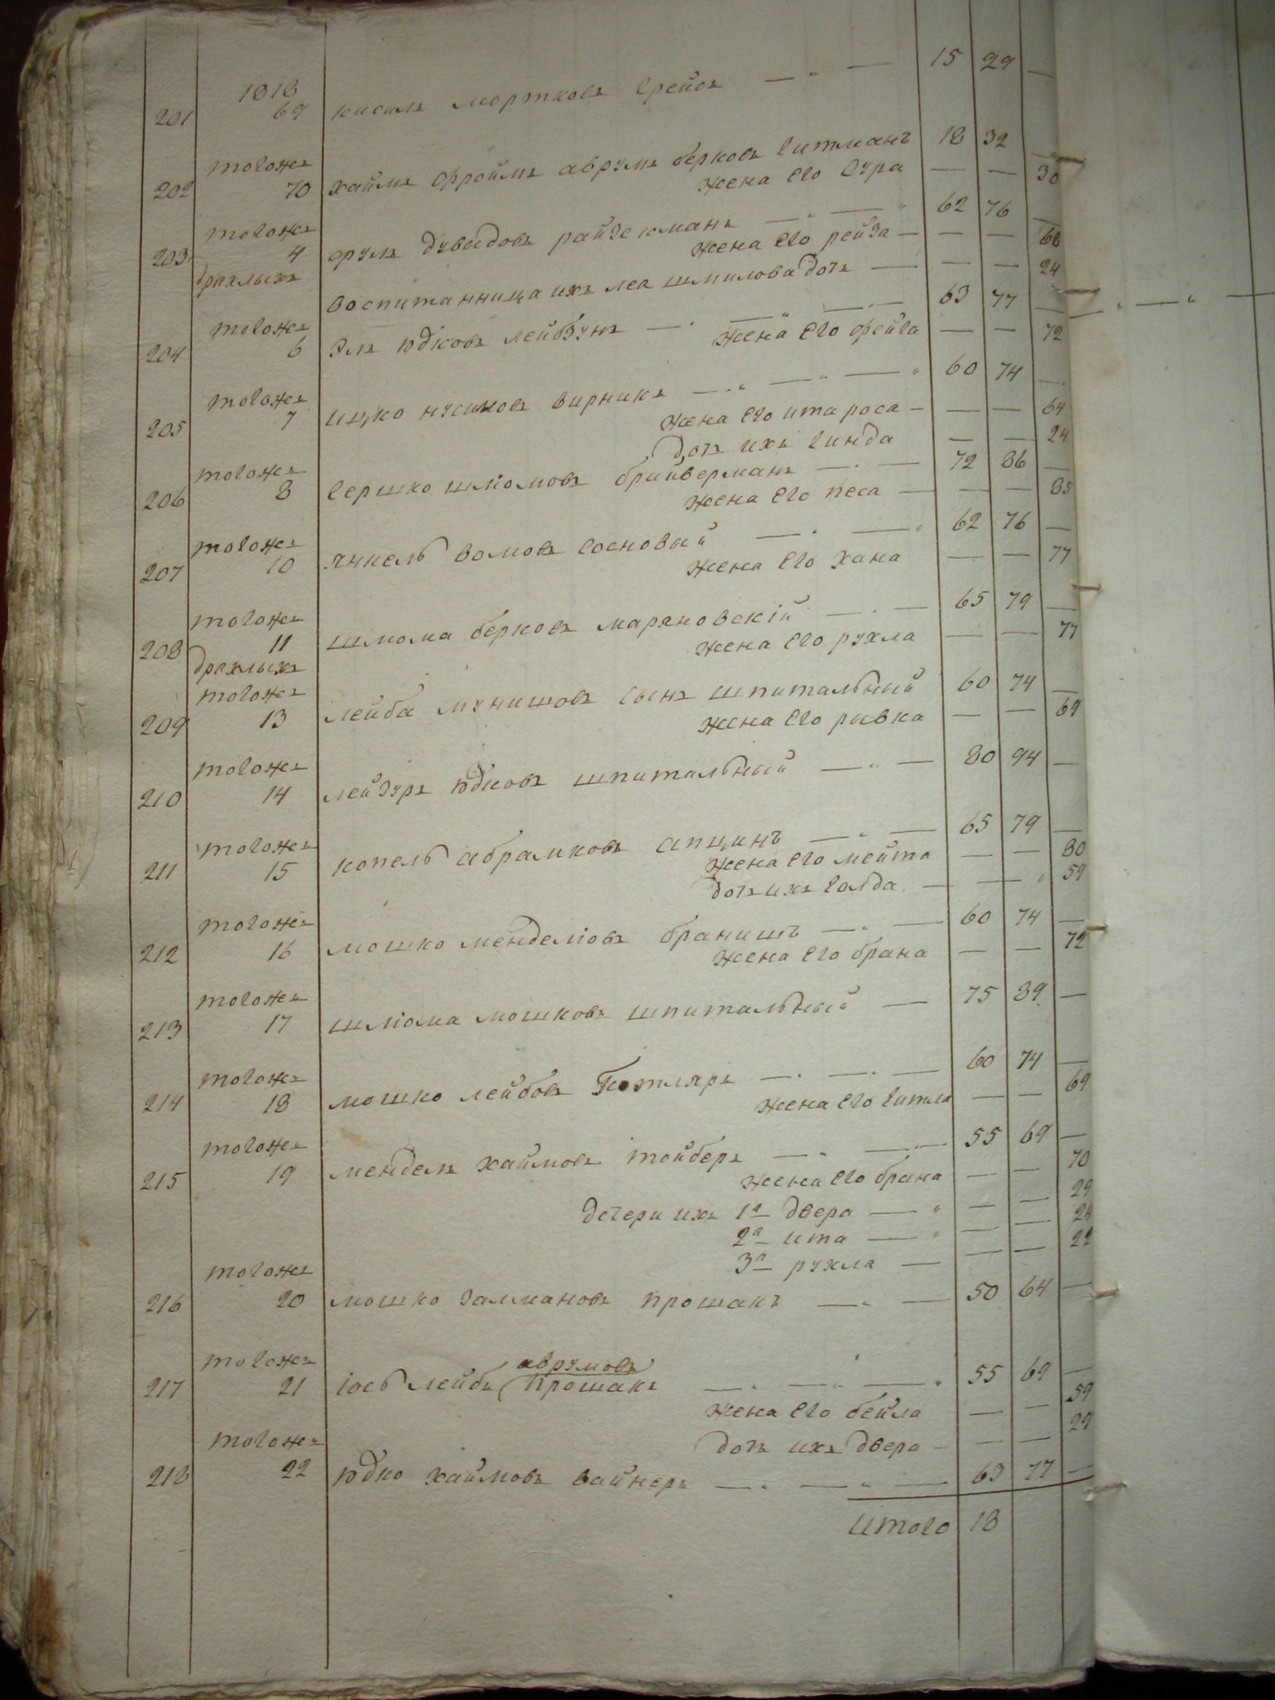 1818
201 69 кисиль мортковъ грейсъ — " — 15 29 —
тогожъ
202 70 хаймъ фроимъ аврумъ берковъ гитманъ 18 32 —
жена его сура — — 30
тогожъ
203 4 сруль дувидовъ райземанъ — " — " 62 76 —
дряхлыхъ жена его рейза — — — 68
воспитанница ихъ леа шмилова дочь — — — 24
тогожъ
204 6 эль юдковъ лейбзунъ — " — " — " — 63 77 —
жена его фейга — — 72
тогожъ
205 7 ицко нусимовъ вирникъ — " — " — " 60 74 —
жена его ита роса — — — 64
дочь ихъ гинда — — 24
тогожъ
206 8 гершко шлiомовъ брийверманъ — " — 72 86 —
жена его песа — — — 85
тогожъ
207 10 янкель волковъ сосновый — " — " 62 76 —
жена его хана — — 77
тогожъ
208 11 шлома берковъ маряновскiй — " — 65 79 —
дряхлыхъ жена его рухла — — 77
тогожъ
209 13 лейба мунишовъ сынъ шпитальный 60 74 —
жена его ривка — — 69
тогожъ
210 14 лейзуръ юдковъ шпитальный — " — 80 94 —
тогожъ
211 15 копель абрамковъ апцинъ — " — 65 79 —
жена его мейта — — 80
дочь ихъ голда — — " 59
тогожъ
212 16 мошко менделiовъ бранишъ — " — 60 74 —
жена его брана — — 72
тогожъ
213 17 шлiома мошковъ шпитальный — 75 89 —
тогожъ
214 18 мошко лейбовъ котляръ — " — " — 60 74 —
жена его гитля — — 69
тогожъ
215 19 мендель хаймовъ тойберъ — " — " — 55 69 —
жена его брана — — 70
дочери ихъ 1я двера — " — — 29
2я ита — " — — 24
3я рухла — — — 22
тогожъ
216 20 мошко залмановъ прошакъ — " — 50 64 —
тогожъ аврумовъ
217 21 iось лейбъ прошакъ — " — " — " 55 69 —
жена его бейла — — 59
дочь ихъ двера — — — 29
тогожъ
218 22 юдко хаймовъ вайнеръ — " — " — 63 77 —
Итого 18